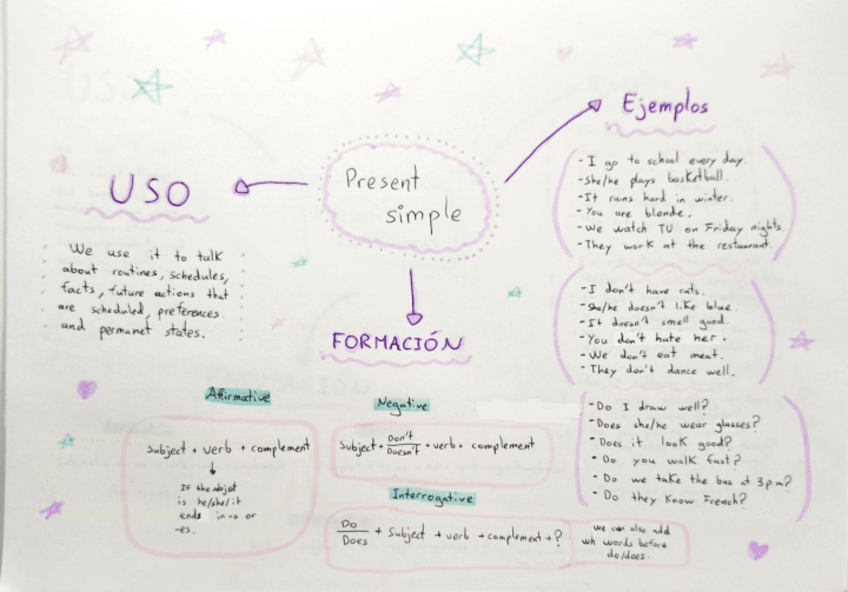 Present
simple
USO
We use it to talk
about routines, schedules,
facts, future actions that
are scheduled, preferences
and permanet states.
Ejemplos
- I go to school every day.
- She/he plays basketball.
- It rains hard in winter.
- You are blonde.
- We watch TV on Friday nights.
- They work at the restaurant.
- I don't have cats.
- She/he doesn't like blue.
- It doesn't smell good.
- You don't hate her.
- We don't eat meat.
- They don't dance well.
- Do I draw well?
- Does she/he wear glasses?
- Does it look good?
- Do you walk fast?
- Do we take the bus at 3p.m?
- Do they know French?
FORMACIÓN
Affirmative
Subject + verb + complement
If the
is he/she/it
ends in -s or
-es.
Negative
Subject + Don't/Doesn't + verb + complement
Interrogative
Do/Does + Subject + verb + complement + ?
we can also add
wh words before
do/does.